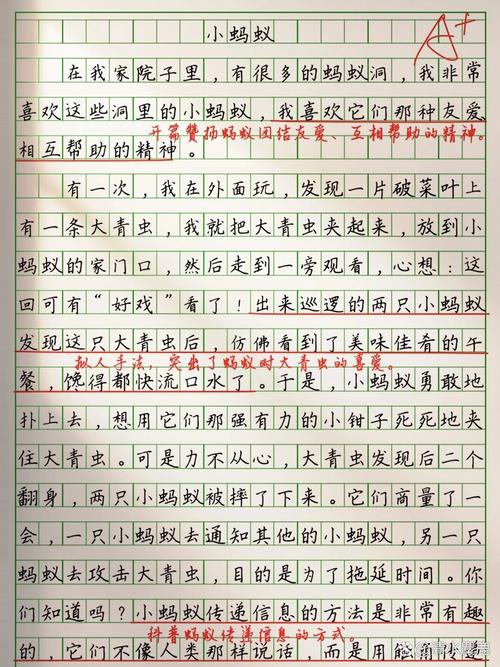 小蚂蚁
A+
在我家院子里，有很多的蚂蚁洞，我非常
喜欢这些洞里的小蚂蚁，我喜欢它们那种友爱
开篇赞扬蚂蚁团结友爱、互相帮助的精神。
相互帮助的精神。
有一次，我在外面玩，发现一片破菜叶上
有一条大青虫，我就把大青虫夹起来，放到小
蚂蚁的家门口，然后走到一旁观看，心想：这
回可有“好戏”看了！出来巡逻的两只小蚂蚁
发现这只大青虫后，仿佛看到了美味佳肴的午
拟人手法，突出了蚂蚁对大青虫的喜爱。
餐，馋得都快流口水了。于是，小蚂蚁勇敢地
扑上去，想用它们那强有力的小钳子死死地夹
住大青虫。可是力不从心，大青虫发现后二个
翻身，两只小蚂蚁被摔了下来。它们商量了一
会，一只小蚂蚁去通知其他的小蚂蚁，另一只
蚂蚁去攻击大青虫，目的是为了拖延时间。你
们知道吗？小蚂蚁传递信息的方法是非常有趣
科普蚂蚁传递信息的方式。
的，它们不像人类那样说话，而是用